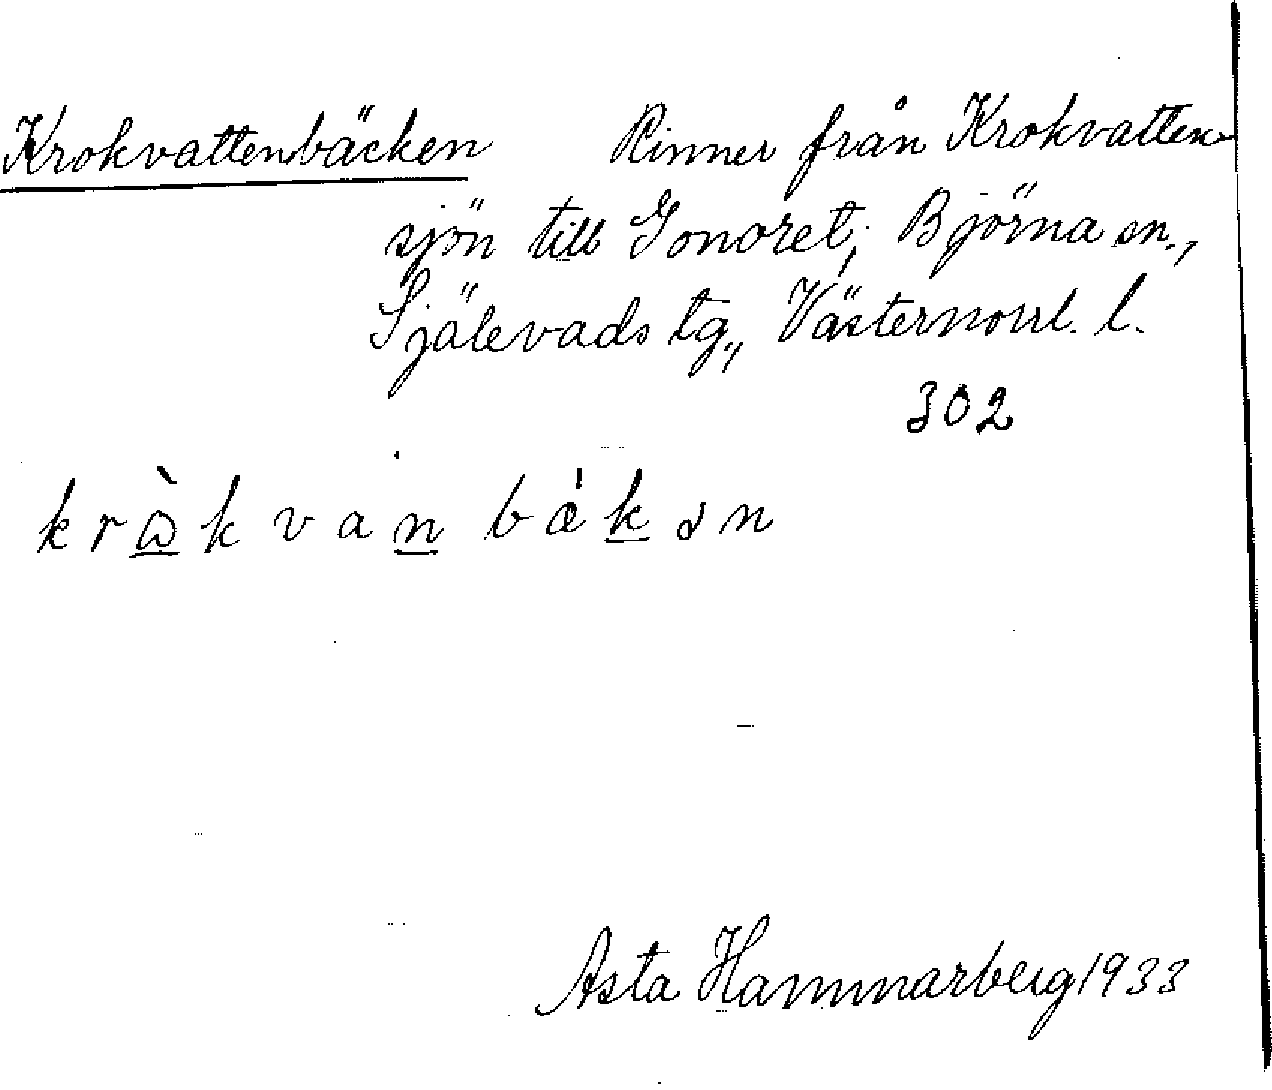 Krokvattenbäcken Rinner från Krokvatten-
sjön till Gonoret, Björna sn.,
Själevads tg., Västernorrl. l.
302
Asta Hammarberg 1933